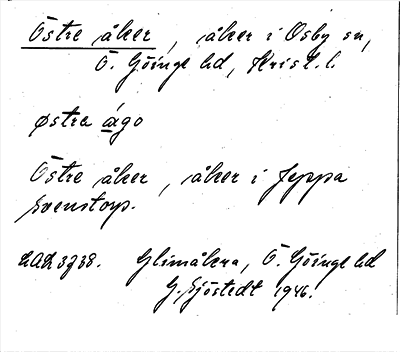 Östre åker, åker i Osby sn,
Ö. Göinge hd, Krist. l.
østra ágo
Östre åker, åker i Jeppa
Svenstorp.
LAL 3738. Glimåkra, Ö. Göinge hd
G. Sjöstedt 1946.